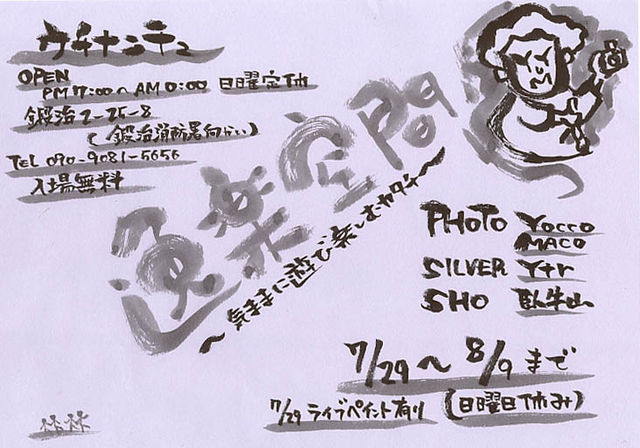 ウチナンチュ
OPEN
PM 7:00〜AM 0:00 日曜定休
鍛冶2-25-8
(鍛冶消防署向かい)
TEL 090-9081-5656
入場無料
遊楽空間
〜気ままに遊び楽しむカタチ〜
PHOTO YOCCO
MACO
SILVER Y+r
SHO 臥牛山
7/29〜8/9まで
7/29 ライブペイント有り (日曜日休み)